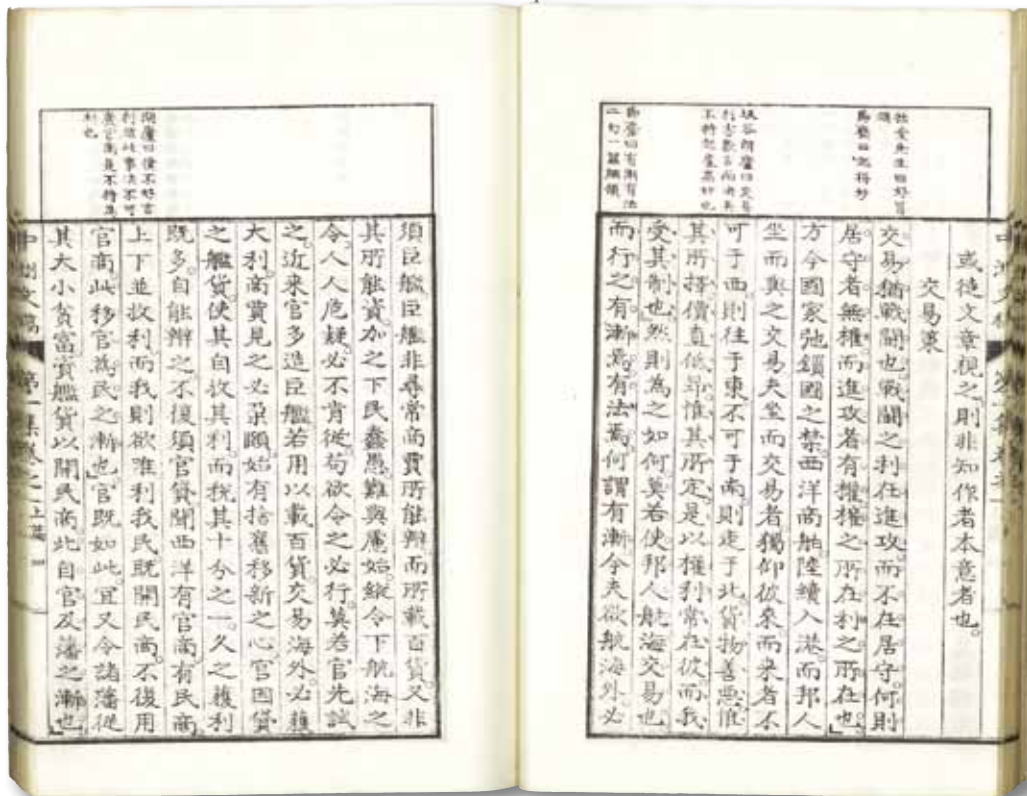 拙堂先生曰好冒
頭
鹿門曰起得妙
坂谷朗廬曰交易
利害數言而決矣
不特起處高妙也
鹿門曰有漸有法
二句一篇綱領
或徒文章視之則非知作者本意者也。
交易策
交易猶戰鬪也戰鬪之利在進攻。而不在居守。何則
居守者無權。而進攻者有權。權之所在利之所在也。」
方今國家弛鎖國之禁。西洋商舶陸續入港。而邦人
坐而與之交易夫坐而交易者獨仰彼來。而来者不
可于西。則往于東不可于南。則走于北。貨物善惡惟
其所擇。價直低昂。惟其所定。是以權利常在彼。而我
受其制也。然則為之如何。莫若使邦人航海交易也。
而行之有漸焉有法焉。何謂有漸。今夫欲航海外。必
須巨艦。巨艦非尋常商費所能辨。而所載百貨又非
其所能資。加之下民蠢愚。難與慮始。縱令下航海之
令。人人危疑。必不肯從。苟欲令之必行。莫若官先試
之。近来官多造巨艦。若用以載百貨。交易海外。必獲
大利。商賈見之必朶頤。始有捨舊移新之心。官因貸
之艦貨。使其自收其利。而稅其十分之一。久之獲利
既多。自能辨之不復須官貸。聞西洋有官商。有民商。
上下並收利。而我則欲唯利我民。既開民商。不復用
官商。此移官為民之漸也。」官既如此。宜又令諸藩從
其大小貧富。貸艦貨以開民商。此自官及藩之漸也。」
朗廬曰僕不好言
利然此事决不可
廢
中洲文稿 第一集卷之上